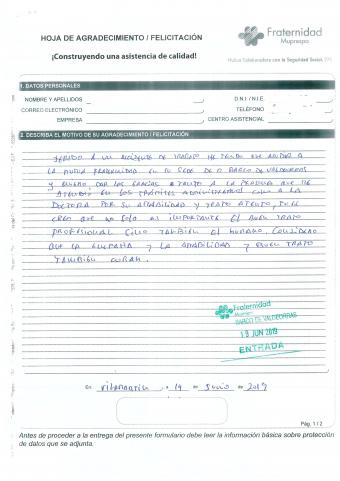 HOJA DE AGRADECIMIENTO / FELICITACIÓN
Fraternidad
Muprespa
¡Construyendo una asistencia de calidad!
Mutua Colaboradora con la Seguridad Social 275
1. DATOS PERSONALES
NOMBRE Y APELLIDOS
D.N.I / N.I.E.
CORREO ELECTRÓNICO
TELÉFONO
EMPRESA
CENTRO ASISTENCIAL
2. DESCRIBA EL MOTIVO DE SU AGRADECIMIENTO / FELICITACIÓN
DEBIDO A UN ACCIDENTE DE TRABAJO HE TENIDO QUE ACUDIR A
LA MUTUA FRATERNIDAD EN SU SEDE DE O BARCO DE VALDEORRAS
Y QUIERO DAR LAS GRACIAS TANTO A LA PERSONA QUE ME
ATENDIO EN LOS TRÁMITES ADMINISTRATIVOS COMO A LA
DOCTORA POR SU AMABILIDAD Y TRATO ATENTO, PUES
CREO QUE NO SOLO ES IMPORTANTE EL BUEN TRATO
PROFESIONAL SINO TAMBIÉN EL HUMANO. CONSIDERO
QUE LA EMPATÍA Y LA AMABILIDAD Y BUEN TRATO
TAMBIÉN CURAN.
Fraternidad
Muprespa
BARCO DE VALDEORRAS
19 JUN 2019
ENTRADA
En Vilamartín, a 19 de Junio de 2019
Pág. 1 / 2
Antes de proceder a la entrega del presente formulario debe leer la información básica sobre protección
de datos que se adjunta.